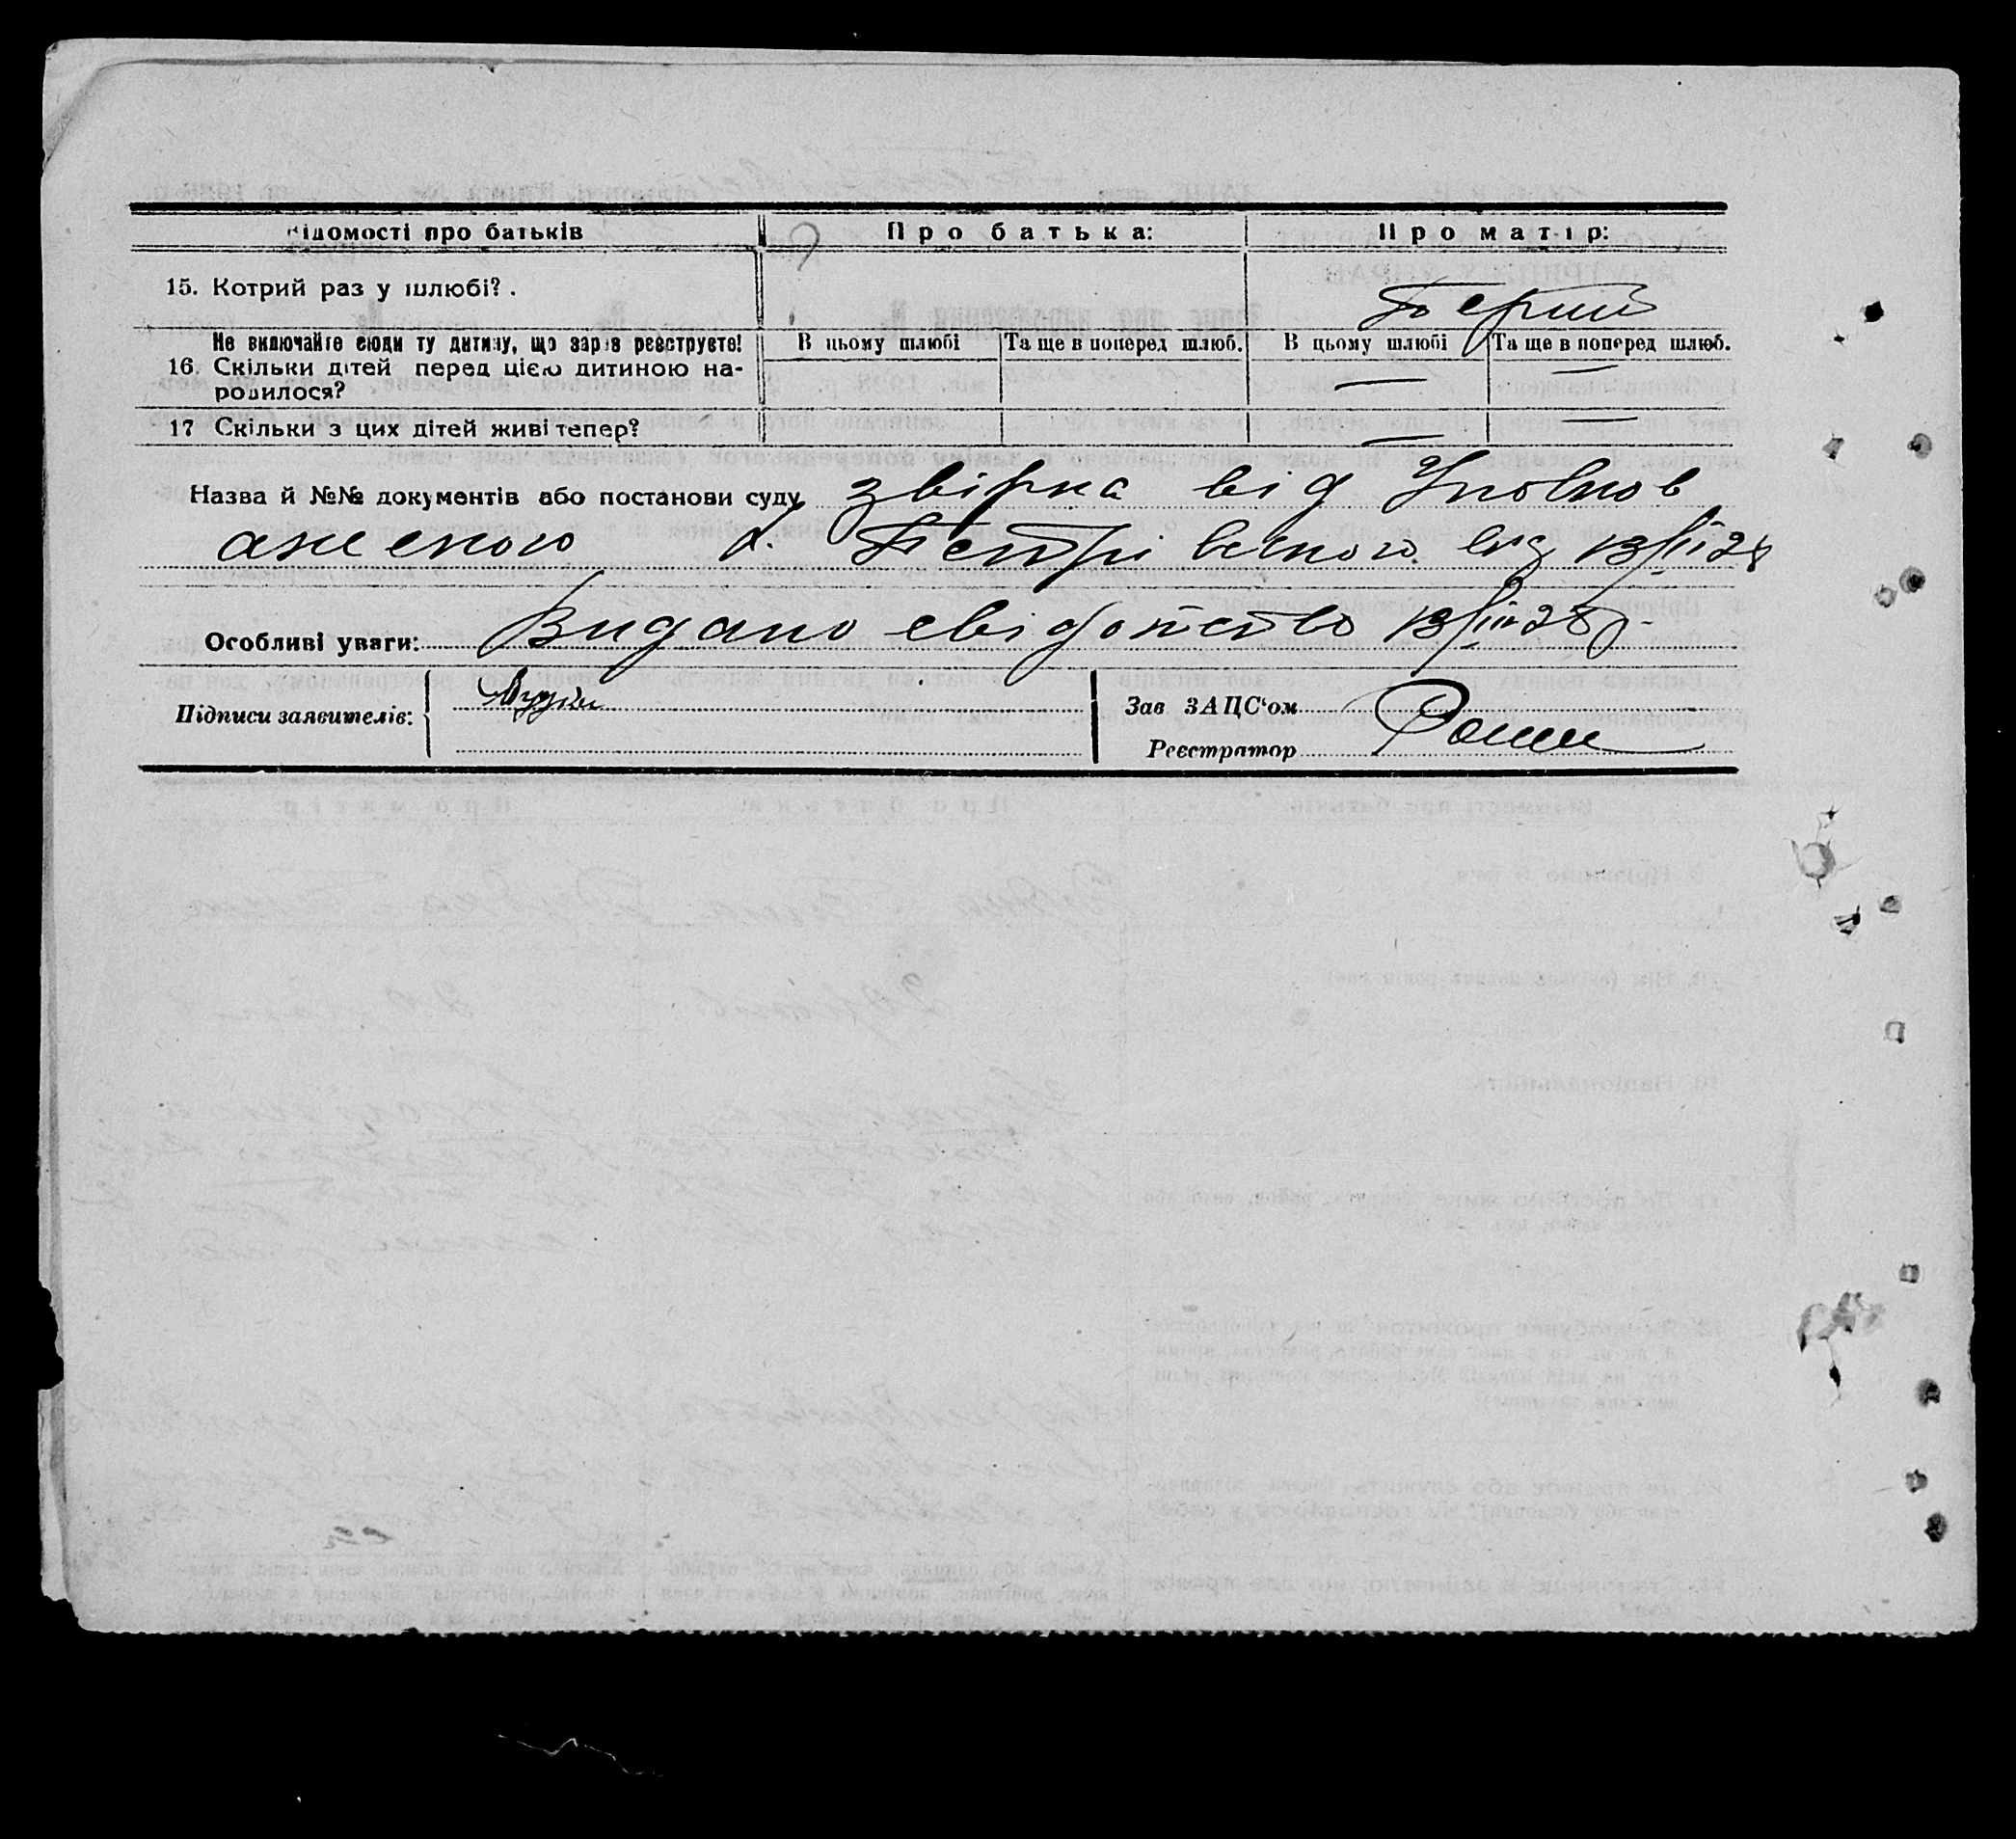 ідомості про батьків
Про батька:
Про матір:
15. Котрий раз у шлюбі? .
Перший
Не включайте сюди ту дитину, що зараз реєструєте!
В цьому шлюбі
Та ще в поперед шлюб.
В цьому шлюбі
Та ще в поперед шлюб.
16. Скільки дітей перед цією дитиною на-
родилося?
—
—
17 Скільки з цих дітей живі тепер?
—
—
Назва й №№ документів або постанови суду звірка від Уповнов
аженого х. Петрівського від 13/III 28
Особливі уваги: Видано свідотство 13/III 28 р.
Підписи заявителів:
Зав ЗАЦС‘ом
Реєстратор